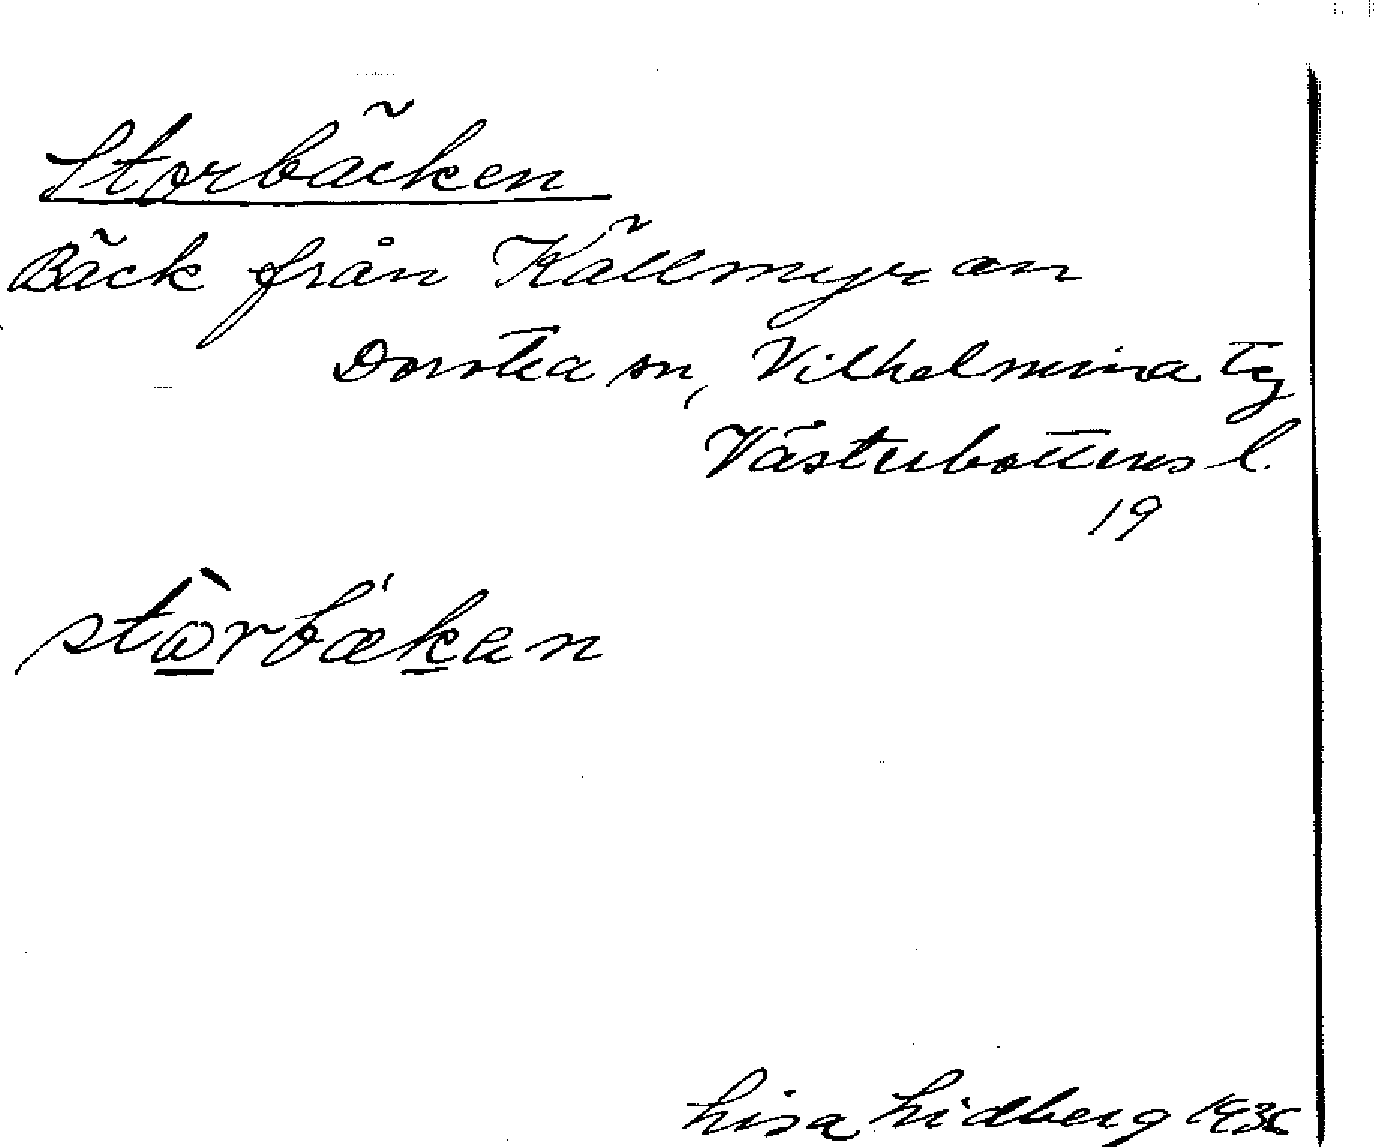 Storbäcken
Bäck från Källmyran
Dorotea sn, Vilhelmina tg
Västerbottens l.
19
stòrbækan
Lisa Lidberg 1936